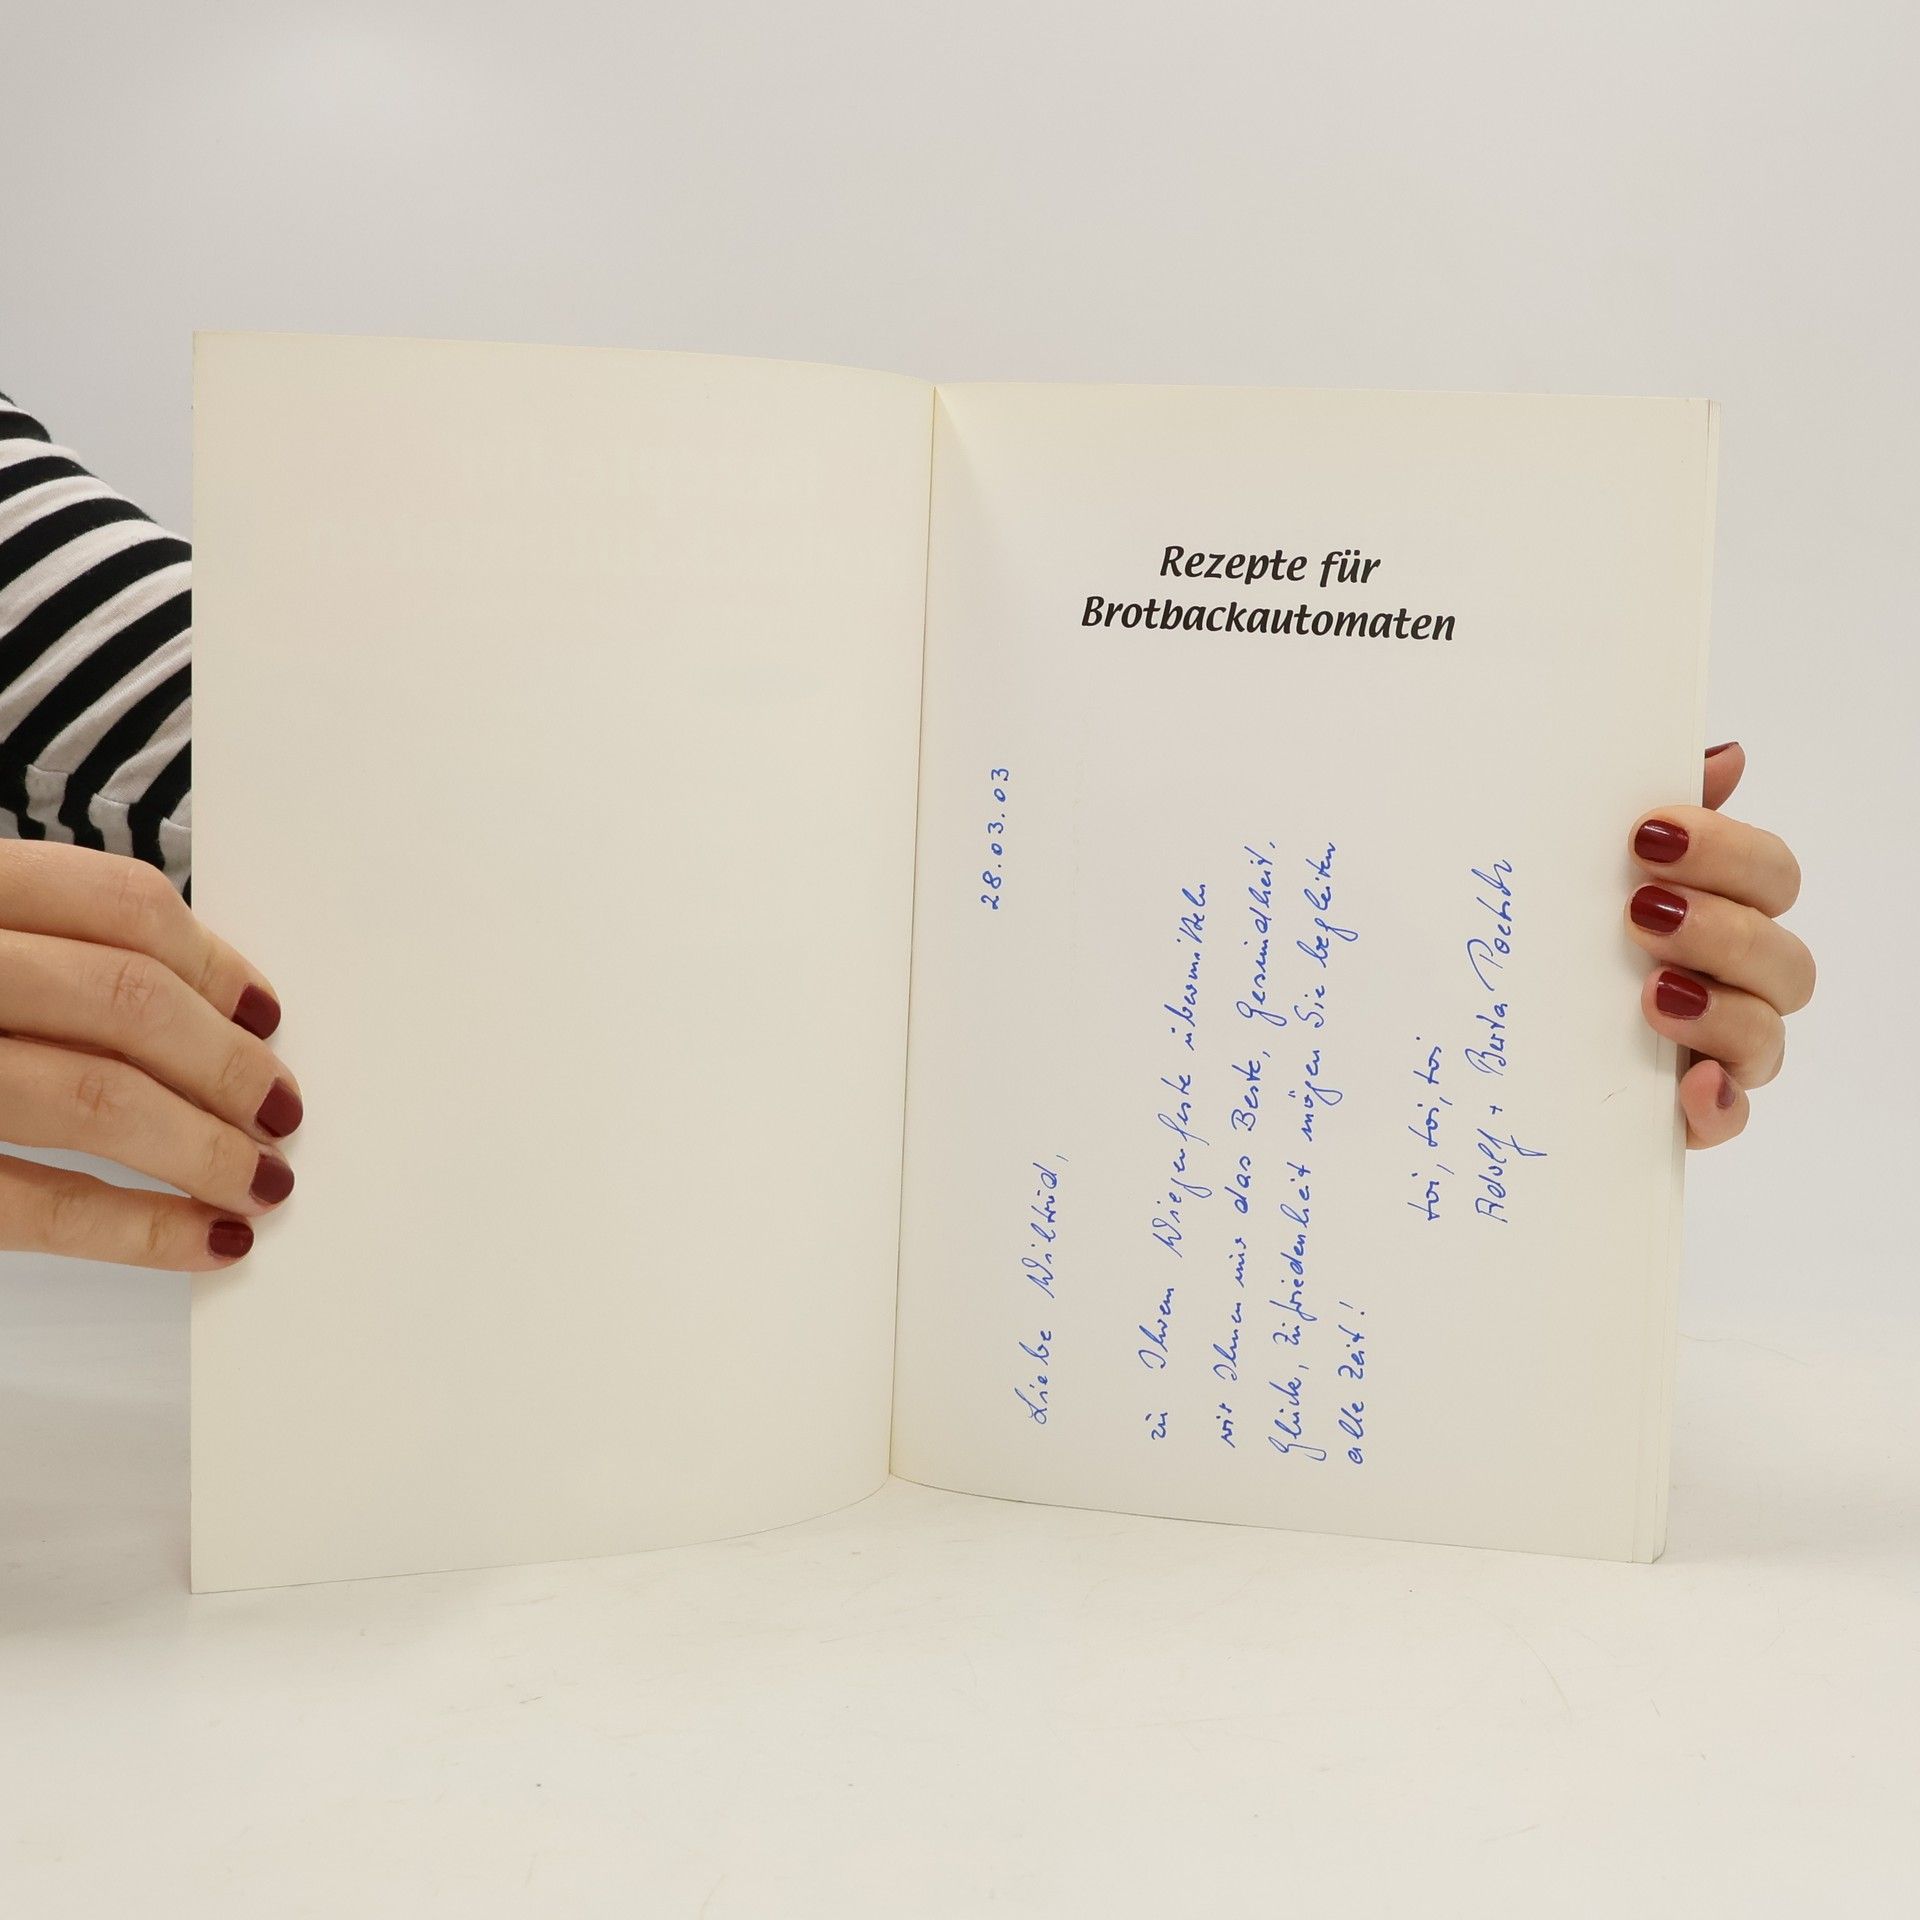 Rezepte für
Brotbackautomaten
28.03.03
Liebe Wiltrud,
zu Ihrem Wiegenfeste übermitteln
wir Ihnen nur das Beste, Gesundheit,
Glück, Zufriedenheit mögen Sie begleiten
alle Zeit!
toi, toi, toi
Adolf + Berta